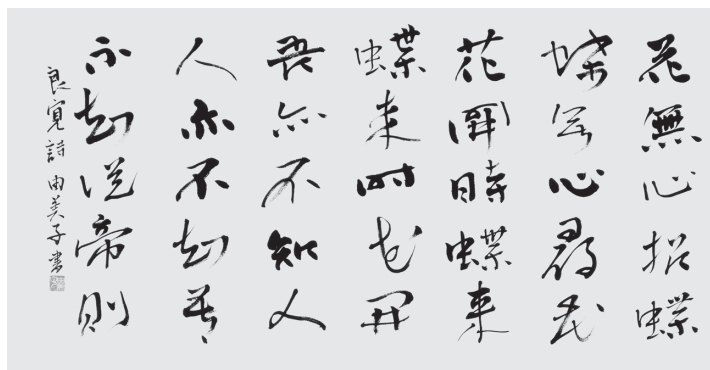 花無心招蝶
蝶無心尋花
花開時蝶来
蝶来時花開
吾亦不知人
人亦不知吾
不知従帝則
良寛詩 由美子書